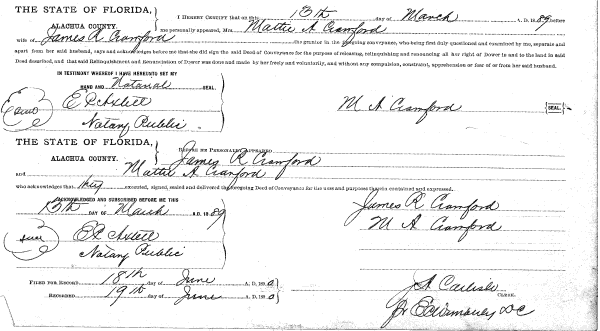 THE STATE OF FLORIDA,
ALACHUA COUNTY.
I HEREBY CERTIFY that on this 13th day of March A. D. 1889 before
me personally appeared, Mrs Mattie A Cranford
wife of James R Cranford the grantor in the foregoing conveyance, who being first duly questioned and examined by me, separate and
apart from her said husband, says and acknowledges before me that she did sign the said Deed of Conveyance for the purpose of releasing, relinquishing and renouncing all her right of Dower in and to the land in said
Deed described, and that said Relinquishment and Renunciation of Dower was done and made by her freely and voluntarily, and without any compulsion, constraint, apprehension or fear of or from her said husband.
IN TESTIMONY WHEREOF I HAVE HEREUNTO SET MY
HAND AND Notarial SEAL.
Seal
Notary Public
M A Cranford {SEAL.}
THE STATE OF FLORIDA,
ALACHUA COUNTY.
BEFORE ME PERSONALLY APPEARED James R Cranford
and Mattie A Cranford
who acknowledges that they executed, signed, sealed and delivered the foregoing Deed of Conveyance for the uses and purposes therein contained and expressed.
ACKNOWLEDGED AND SUBSCRIBED BEFORE ME THIS
13th DAY OF March A.D. 1889
James R Cranford
M A Cranford
Seal
Notary Public
FILED FOR RECORD 18th day of June A. D. 1890
RECORDED 19th day of June A. D. 1890
J A Carlisle
CLERK.
DC